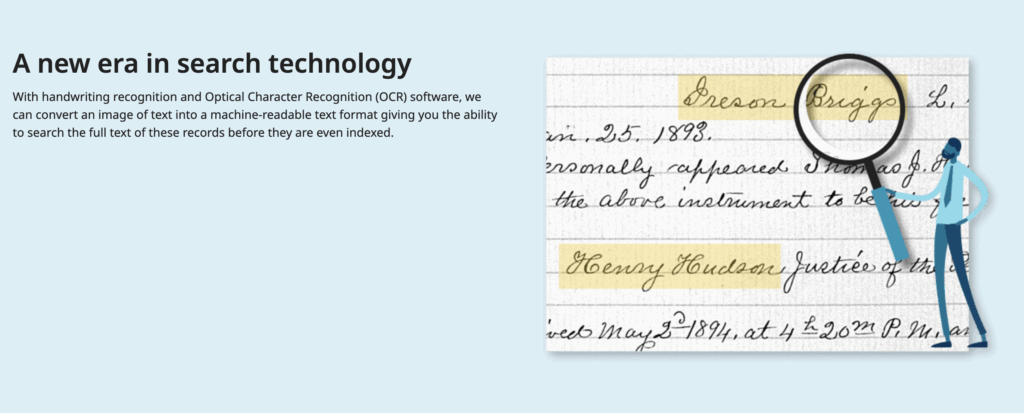 A new era in search technology
With handwriting recognition and Optical Character Recognition (OCR) software, we
can convert an image of text into a machine-readable text format giving you the ability
to search the full text of these records before they are even indexed.
Ireson Briggs L.
25. 1893.
ersonally appeared Thomas J.
the above instrument to be his
Henry Hudson, Justice of the
ved May 2d 1894, at 4 h 20 m P. M. an